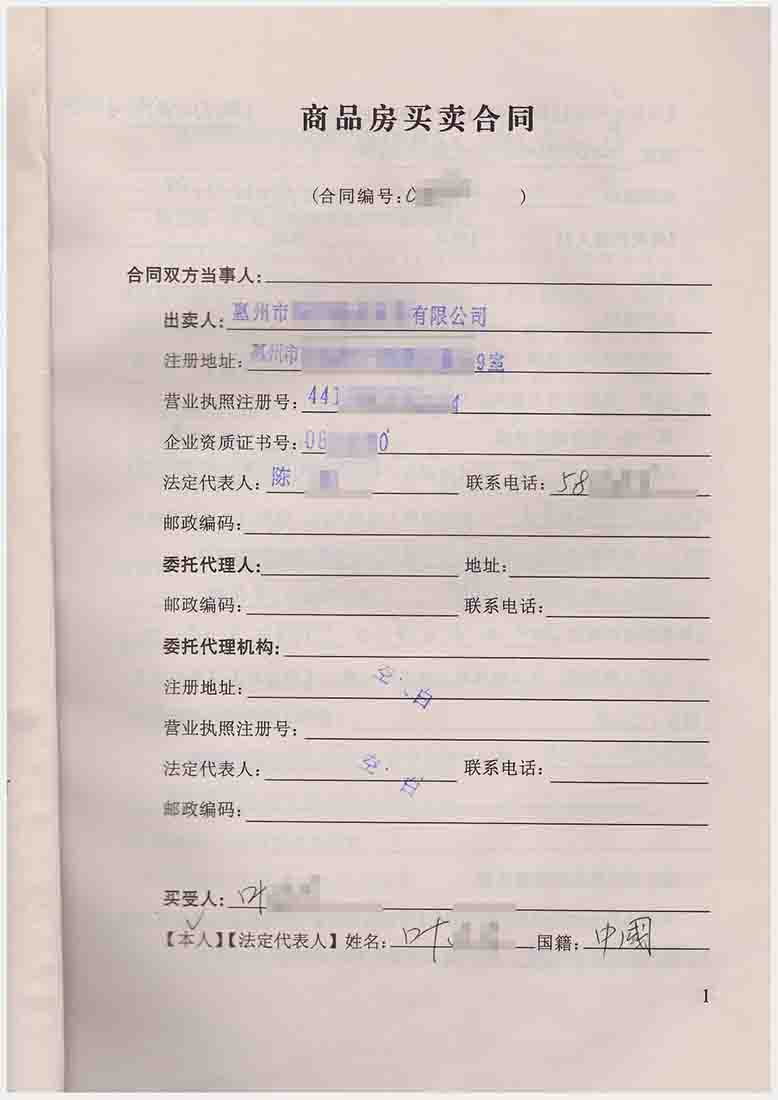 商品房买卖合同
(合同编号:C )
合同双方当事人:
出卖人:惠州市 有限公司
注册地址:惠州市 9室
营业执照注册号:441 4
企业资质证书号:08 0
法定代表人:陈 联系电话:58
邮政编码:
委托代理人: 地址:
邮政编码: 联系电话:
委托代理机构:
注册地址: 空白
营业执照注册号:
法定代表人: 空白 联系电话:
邮政编码:
买受人:叶
【本人】【法定代表人】姓名:叶 国籍:中國
1